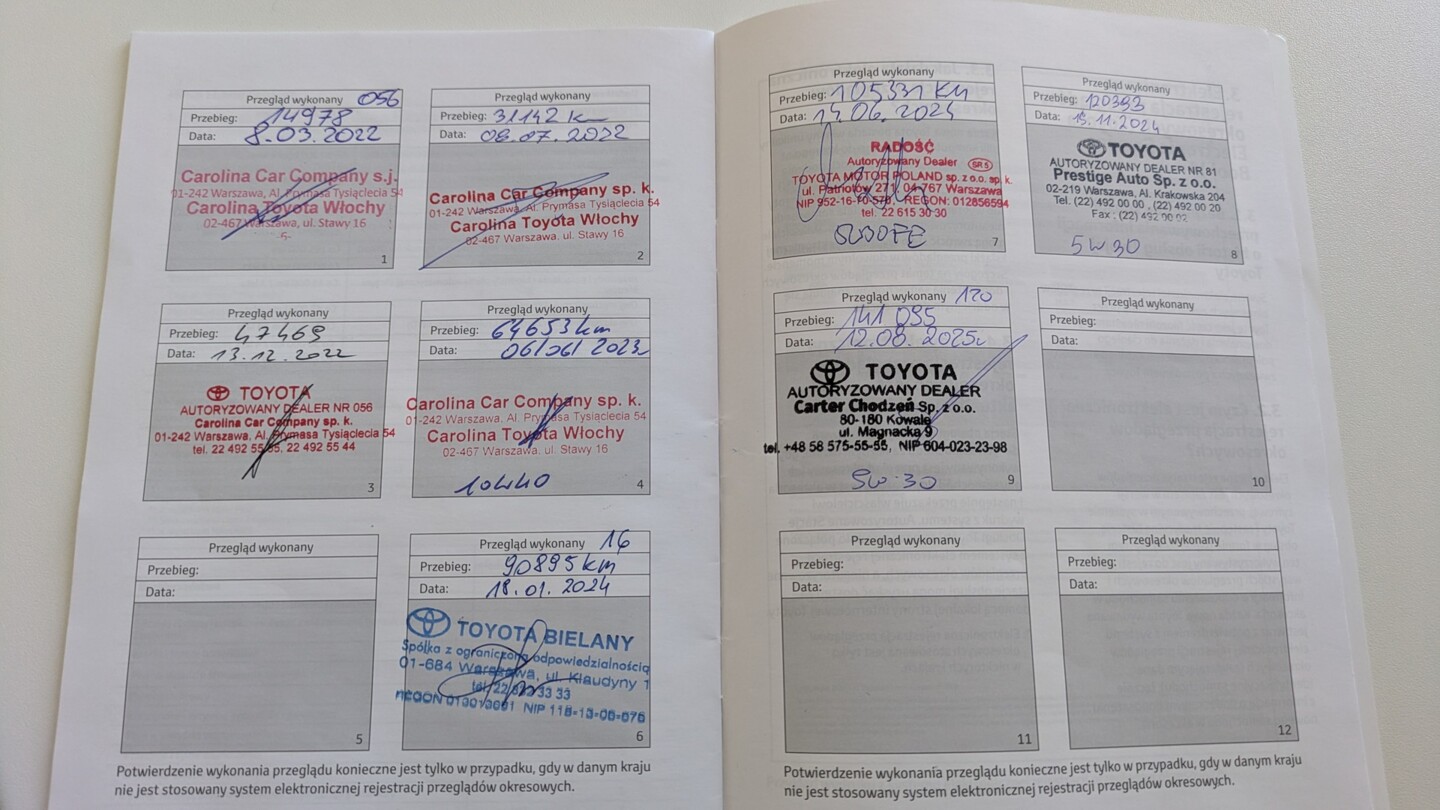 Przegląd wykonany 056
Przebieg: 14978
Data: 8.03.2022
Carolina Car Company s.j.
01-242 Warszawa, Al. Prymasa Tysiąclecia 54
Carolina Toyota Włochy
02-467 Warszawa, ul. Stawy 16
1
Przegląd wykonany
Przebieg: 31142 km
Data: 06.07.2022
Carolina Car Company sp. k.
01-242 Warszawa, Al. Prymasa Tysiąclecia 54
Carolina Toyota Włochy
02-467 Warszawa. ul. Stawy 16
2
Przegląd wykonany
Przebieg: 47469
Data: 13.12.2022
TOYOTA
AUTORYZOWANY DEALER NR 056
Carolina Car Company sp. k.
01-242 Warszawa, Al. Prymasa Tysiąclecia 54
tel. 22 492 55 55, 22 492 55 44
3
Przegląd wykonany
Przebieg: 64653 km
Data: 06/06/2023
Carolina Car Company sp. k.
01-242 Warszawa, Al. Prymasa Tysiąclecia 54
Carolina Toyota Włochy
02-467 Warszawa, ul. Stawy 16
4
Przegląd wykonany
Przebieg:
Data:
5
Przegląd wykonany 16
Przebieg: 90895 km
Data: 18.01.2024
TOYOTA BIELANY
Spółka z ograniczoną odpowiedzialnością
01-684 Warszawa, ul. Klaudyny 1
tel. 22 33 33
REGON NIP
6
Potwierdzenie wykonania przeglądu konieczne jest tylko w przypadku, gdy w danym kraju
nie jest stosowany system elektronicznej rejestracji przeglądów okresowych.
Przegląd wykonany
Przebieg: 105331 km
Data: 14.06.2024
RADOŚĆ
Autoryzowany Dealer SR 5
TOYOTA MOTOR POLAND sp. z o.o. sp. k.
ul. Patriotów 271, 04-767 Warszawa
REGON: 012856594
tel. 22 615 30 30
7
Przegląd wykonany
Przebieg: 120393
Data: 15.11.2024
TOYOTA
AUTORYZOWANY DEALER NR 81
Prestige Auto Sp. z o.o.
02-219 Warszawa, Al. Krakowska 204
Tel. (22) 492 00 00 , (22) 492 00 20
Fax : (22) 492 00 02
5W30
8
Przegląd wykonany 120
Przebieg: 141 095
Data: 12.08.2025r
TOYOTA
AUTORYZOWANY DEALER
Carter Chodzeń Sp. z o.o.
80-180 Kowale
ul. Magnacka 9
tel. +48 58 575-55-55, NIP 604-023-23-98
5W-30
9
Przegląd wykonany
Przebieg:
Data:
10
Przegląd wykonany
Przebieg:
Data:
11
Przegląd wykonany
Przebieg:
Data:
12
Potwierdzenie wykonania przeglądu konieczne jest tylko w przypadku, gdy w danym kraju
nie jest stosowany system elektronicznej rejestracji przeglądów okresowych.